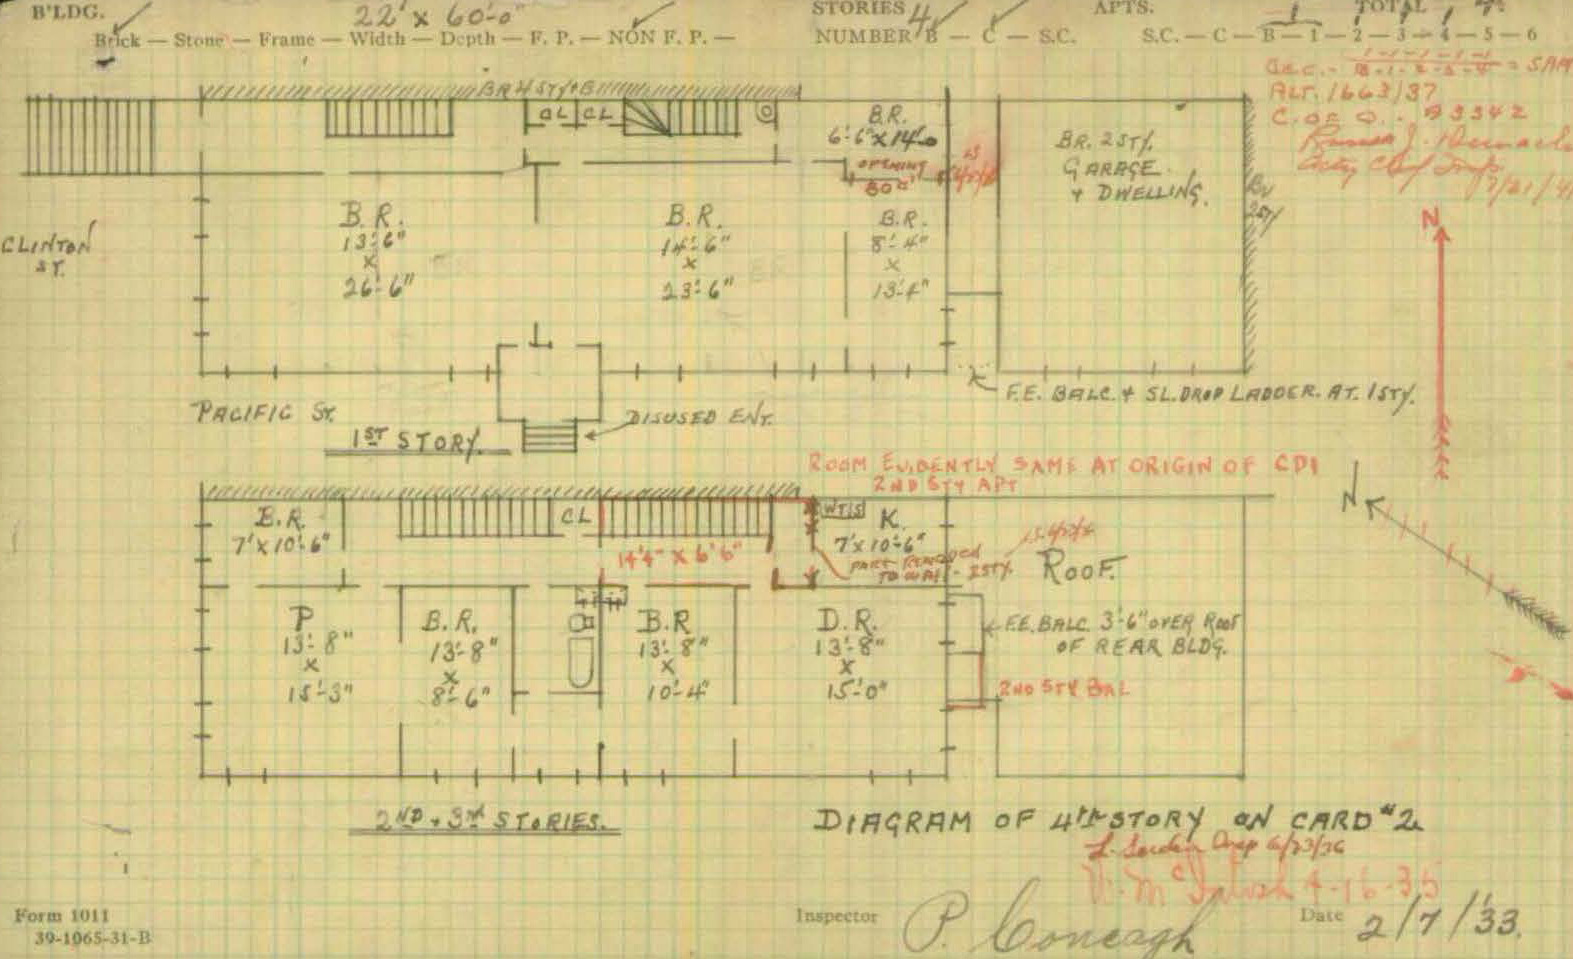 B'LDG. 22' x 60'-0" STORIES 4 APTS. TOTAL 7
Brick — Stone — Frame — Width — Depth — F. P. — NON F. P. — NUMBER B — C — S.C. S.C. — C — B — 1 — 2 — 3 — 4 — 5 — 6
ALT. 1663/37
C. OF O.
BR 4 STY + B
CL CL
B.R.
6'-6" x 14'-0
OPENING
80"
BR. 2 STY.
GARAGE
+ DWELLING.
BR
2 STY
N
CLINTON
ST.
B.R.
13'-6"
x
26'-6"
B.R.
14'-6"
x
23'-6"
B.R.
8'-4"
x
13'-4"
F.E. BALC. + SL. DROP LADDER. AT. 1 STY.
PACIFIC ST.
1ST STORY.
DISUSED ENT.
ROOM EVIDENTLY SAME AT ORIGIN OF CD1
2ND STY APT
N
B.R.
7' x 10'-6"
CL
14'4" x 6'6"
WT/S
K.
7' x 10'-6"
PART REMOVED
2 STY.
ROOF.
P
13'-8"
x
15'-3"
B.R.
13'-8"
x
8'-6"
B.R
13'-8"
x
10'-4"
D.R.
13'-8"
x
15'-0"
F.E. BALC. 3'-6" OVER ROOF
OF REAR BLDG.
2ND STY BAL
2ND + 3RD STORIES.
DIAGRAM OF 4TH STORY ON CARD #2
V. McIntosh 4-16-35
Form 1011
39-1065-31-B
Inspector P. Coneagh Date 2/7/33.